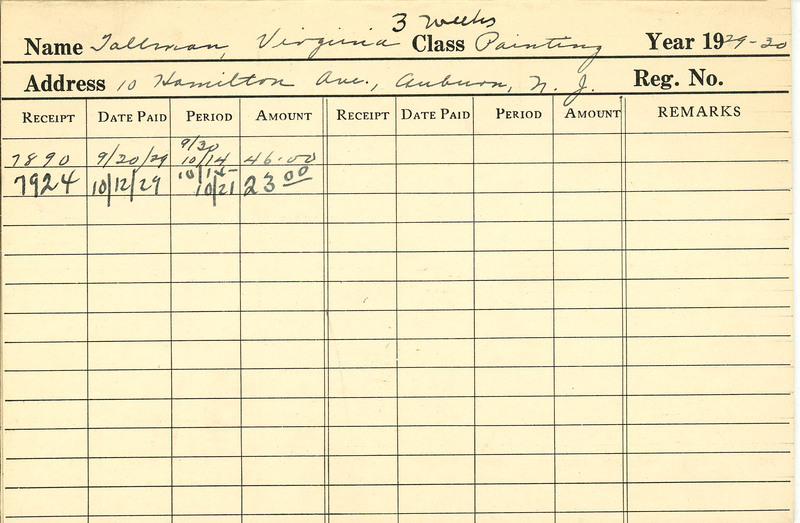 3 weeks
Name Tallman, Virginia Class Painting Year 1929-30
Address 10 Hamilton Ave., Auburn, N. J. Reg. No.
RECEIPT DATE PAID PERIOD AMOUNT RECEIPT DATE PAID PERIOD AMOUNT REMARKS
9/30
7890 9/20/29 10/14 46.00
10/14-
7924 10/12/29 10/21 23 00